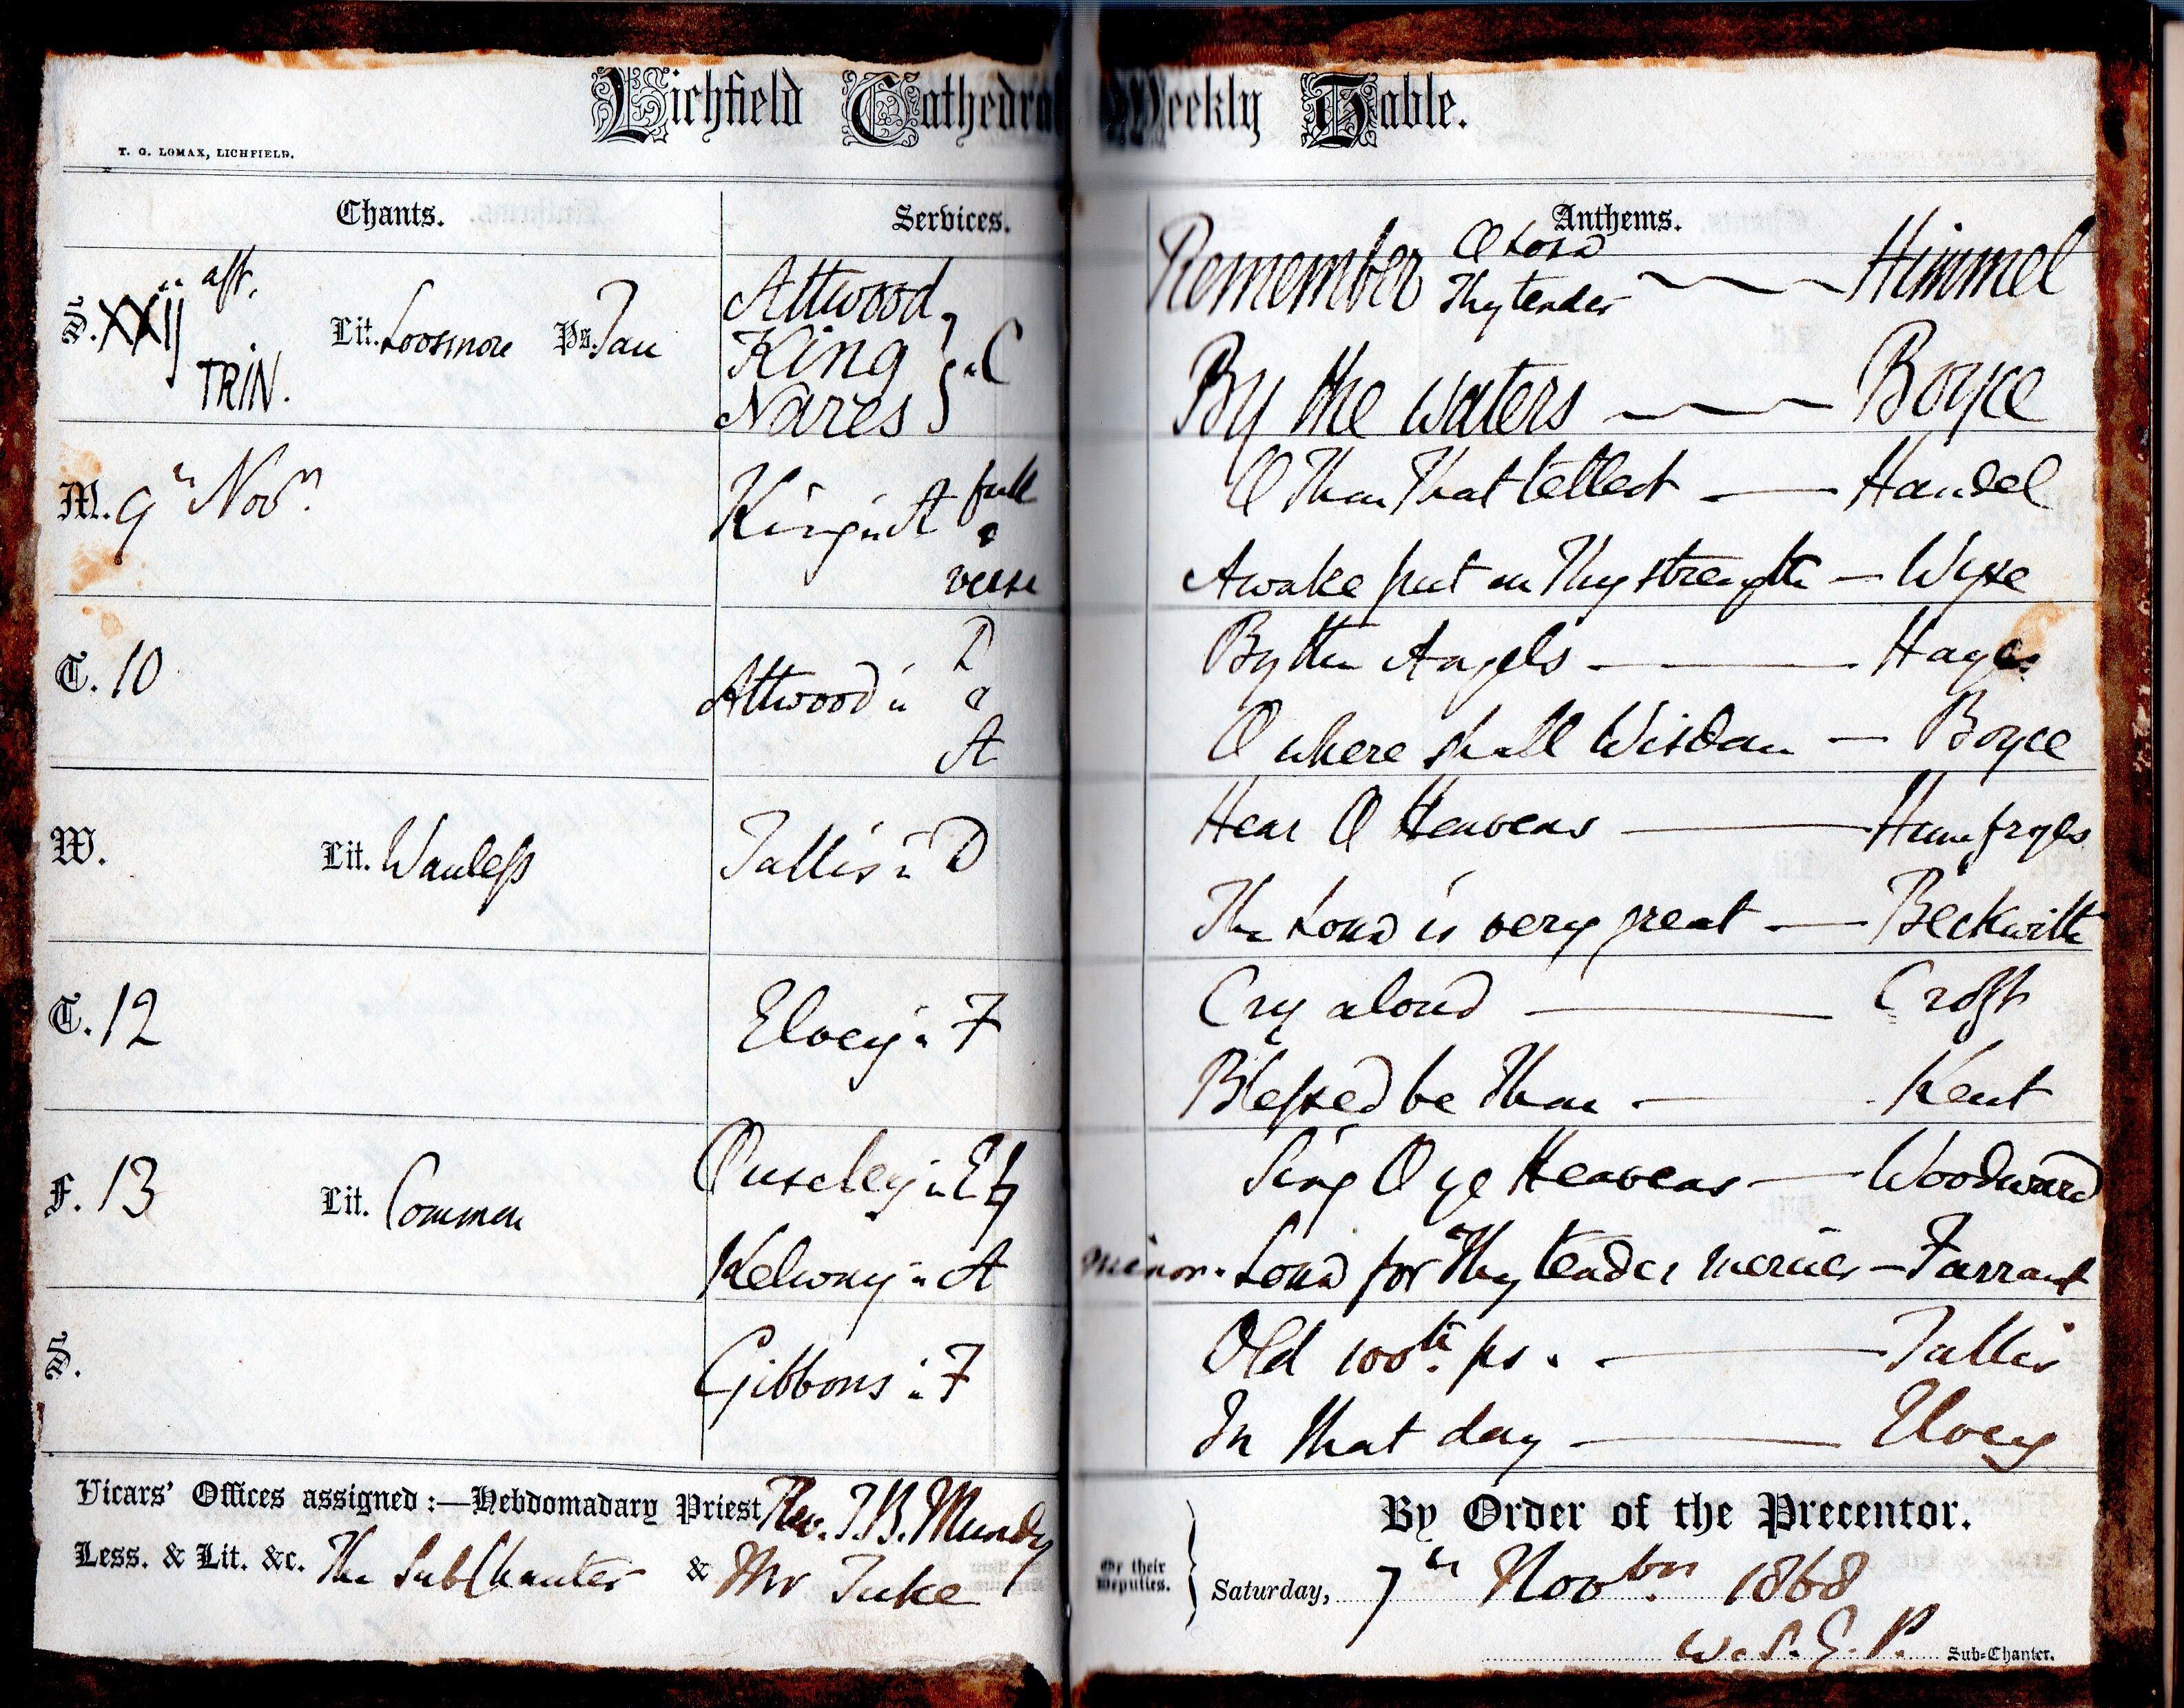 Lichfield Cathedral Weekly Table.
T. G. LOMAX, LICHFIELD.
Chants. Services. Anthems.
S. XXij aft. TRIN. Lit. Loosmore Ps. Tau
Attwood
King in C
Nares
Remember O Lord Thy tender — Himmel
By the waters — Boyce
M. 9th Novr. King in A full & verse
O Thou That tellest — Handel
Awake put on Thy strength — Wyse
T. 10 Attwood in D & A
By the Angels — Hayes
O where shall Wisdom — Boyce
W. Lit. Wanless Tallis in D
Hear O Heavens — Humfryes
The Lord is very great — Beckwith
T. 12 Elvey in F
Cry aloud — Croft
Blessed be Thou — Kent
F. 13 Lit. Common Ouseley in E♮
Sing O ye Heavens — Woodward
Kelway in A minor.
Lord for Thy tender mercies — Farrant
S. Gibbons in F
Old 100th. ps. — Tallis
In that day — Elvey
Vicars' Offices assigned :—Hebdomadary Priest Rev. T.B. Mundy
Less. & Lit. &c. The SubChanter & Mr Tuke
Or their Deputies.
By Order of the Precentor.
Saturday, 7th Novbr. 1868
W. S. G. P. Sub-Chanter.